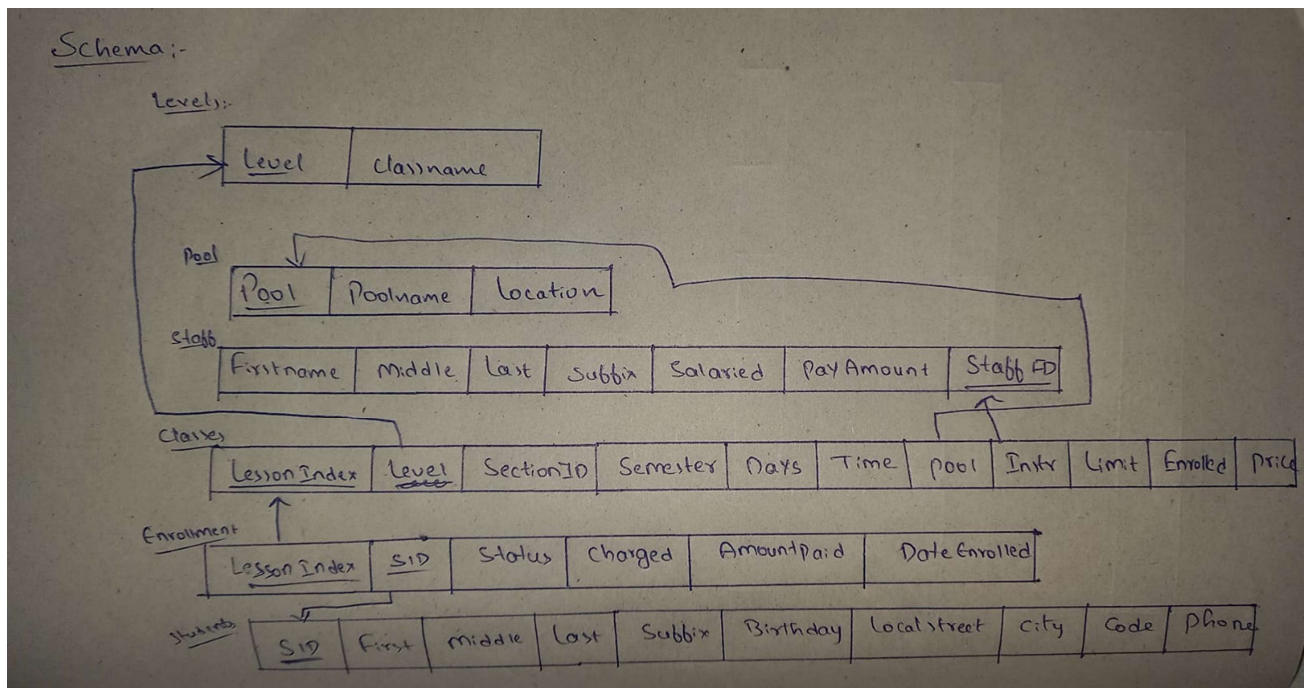 Schema:-
Levels:-
Level Classname
Pool
Pool Poolname Location
Staff
Firstname Middle Last Suffix Salaried PayAmount Staff ID
Classes
Lesson Index Level SectionID Semester Days Time Pool Instr Limit Enrolled Price
Enrollment
Lesson Index SID Status Charged AmountPaid DateEnrolled
Students
SID First Middle Last Suffix Birthday Localstreet City Code Phone